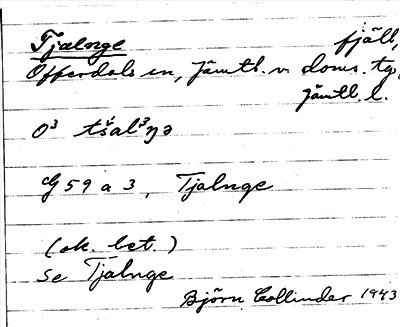 Tjalnge fjäll,
Offerdals sn, Jämtl. v. doms. tg,
Jämtl. l.
O³ tšal³ŋə
G 59 a 3, Tjalnge
(ok. bet.)
se Tjalnge
Björn Collinder 1943